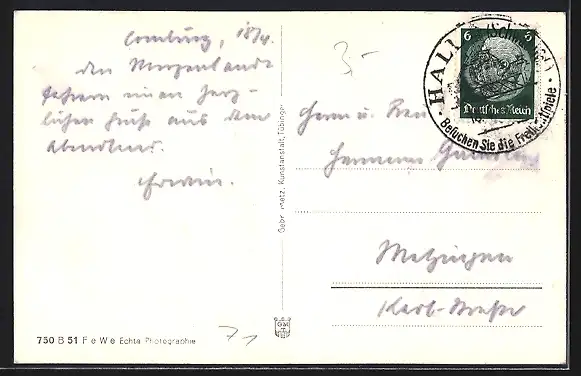 Comburg, 18/4.
den Morgenlandt-
fahrern einen herz-
lichen Gruß aus dem
Abendland.
Erwin.
3-
Herrn u. Frau
Hermann
Metzingen
Karl-Straße
HALL (Schwäb.)
Besuchen Sie die Freilichtspiele
6 6
Deutsches Reich
Gebr. Metz, Kunstanstalt, Tübingen
GM
750 B 51 F e W e Echte Photographie
71